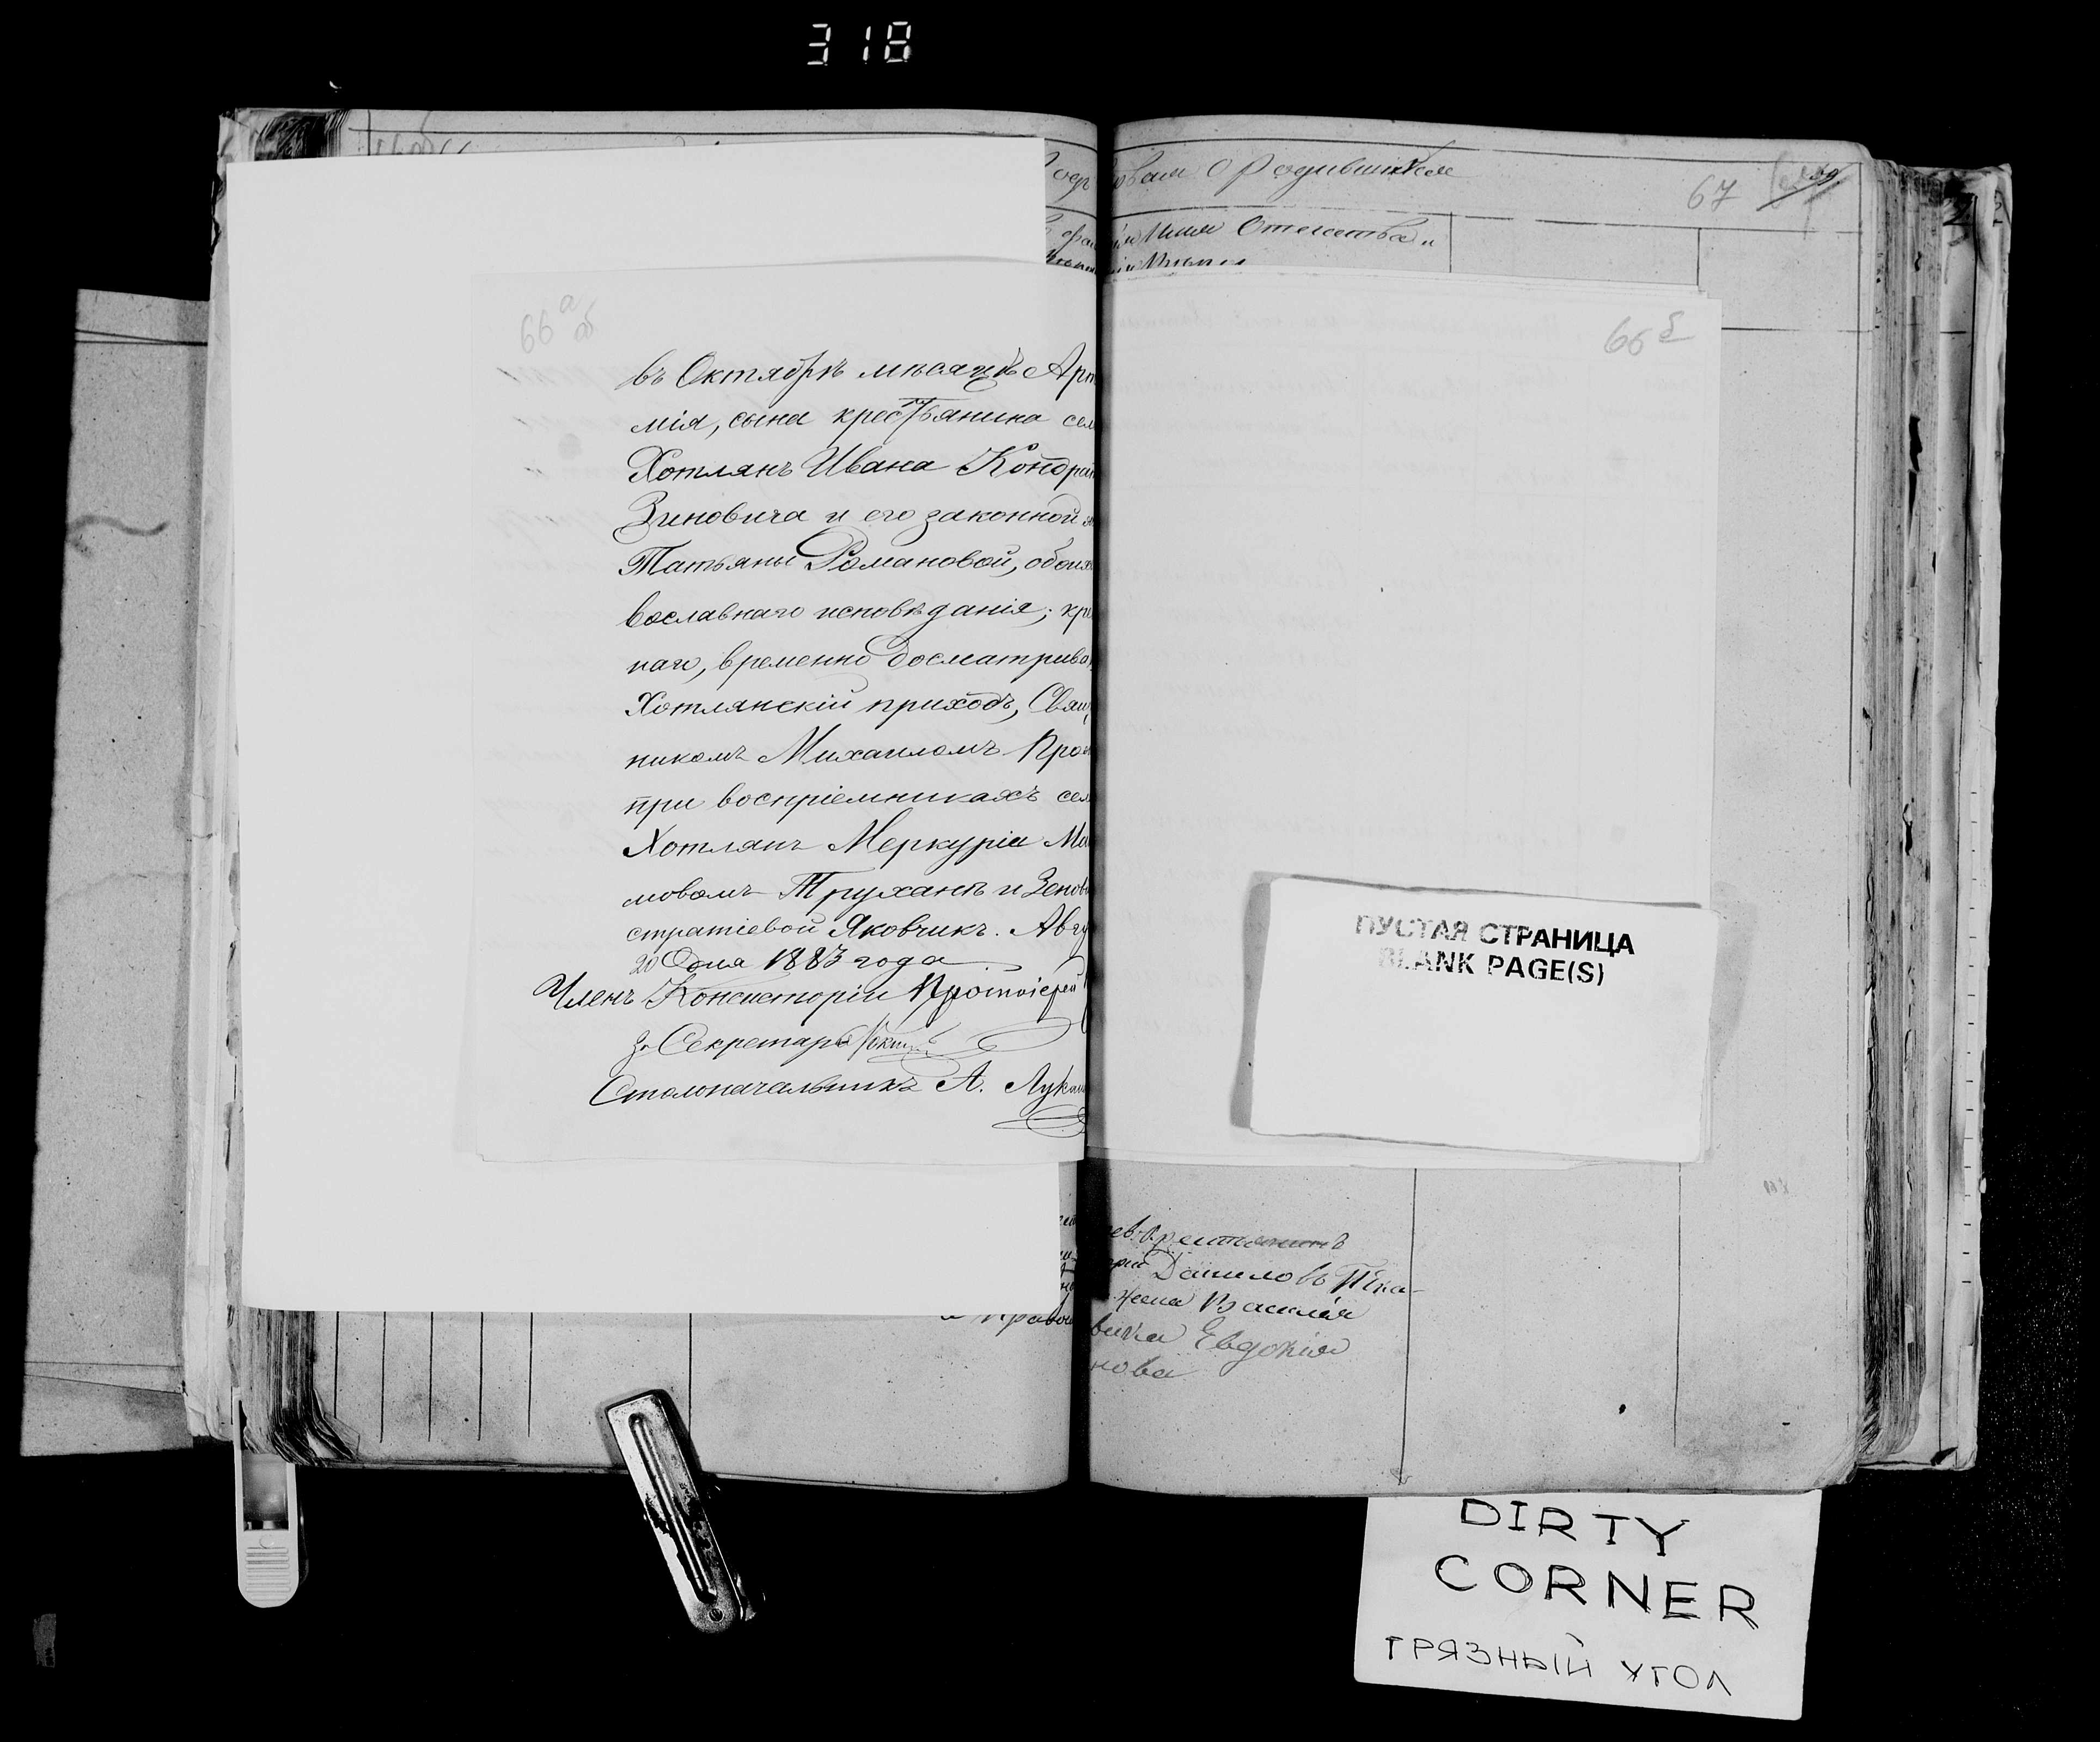 318
о Родившихся
67
Имя Отчество и
66 а об
66 б
въ Октябрѣ мѣсяцѣ Арт
мія, сына крестьянина сел
Хотлянъ Ивана Кондрат
Зиновича и его законной
Татьяны Романовой, обоих
вославнаго исповѣданія; кре
наго, временно досматрива
Хотлянскій приходъ, Свящ
никомъ Михаиломъ Про
при воспріемникахъ сел
Хотлянъ Меркуріи Ма
мовомъ Труханѣ и Зенов
стратіевой Яковчикъ. Авгу
20 дня 1883 года
Членъ Консисторіи Протоіерей
За Секретаря
Столоначальникъ А. Лука
ПУСТАЯ СТРАНИЦА
BLANK PAGE(S)
Крестьянинъ
Даниловъ Тка-
жена Василія
Евдокія
нова
DIRTY
CORNER
ГРЯЗНЫЙ УГОЛ